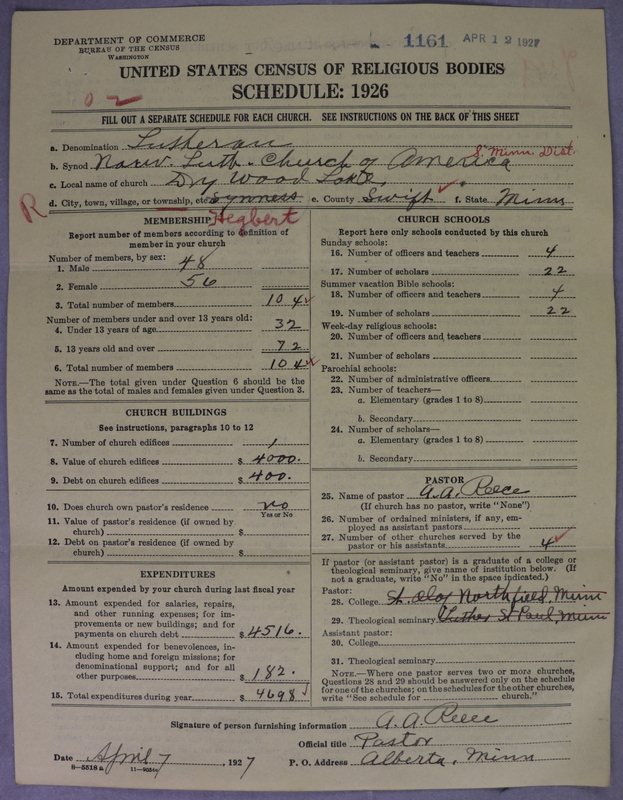 DEPARTMENT OF COMMERCE
BUREAU OF THE CENSUS
WASHINGTON
1161 APR 12 1927
UNITED STATES CENSUS OF RELIGIOUS BODIES
SCHEDULE: 1926
02
FILL OUT A SEPARATE SCHEDULE FOR EACH CHURCH. SEE INSTRUCTIONS ON THE BACK OF THIS SHEET
a. Denomination Lutheran
b. Synod Norw. Luth. Church of America S. Minn. Dist.
c. Local name of church Dry Wood Lake
d. City, town, village, or township, etc. Synness e. County Swift f. State Minn
R Hegbert
MEMBERSHIP
Report number of members according to definition of
member in your church
Number of members, by sex:
1. Male 48
2. Female 56
3. Total number of members 104
Number of members under and over 13 years old:
4. Under 13 years of age 32
5. 13 years old and over 72
6. Total number of members 104
NOTE.—The total given under Question 6 should be
same as the total of males and females given under Question 3.
CHURCH BUILDINGS
See instructions, paragraphs 10 to 12
7. Number of church edifices 1
8. Value of church edifices $ 4000.
9. Debt on church edifices $ 400.
10. Does church own pastor's residence no
Yes or No
11. Value of pastor's residence (if owned by
church) $
12. Debt on pastor's residence (if owned by
church) $
EXPENDITURES
Amount expended by your church during last fiscal year
13. Amount expended for salaries, repairs,
and other running expenses; for im-
provements or new buildings; and for
payments on church debt $ 4516.
14. Amount expended for benevolences, in-
cluding home and foreign missions; for
denominational support; and for all
other purposes $ 182.
15. Total expenditures during year $ 4698
CHURCH SCHOOLS
Report here only schools conducted by this church
Sunday schools:
16. Number of officers and teachers 4
17. Number of scholars 22
Summer vacation Bible schools:
18. Number of officers and teachers 4
19. Number of scholars 22
Week-day religious schools:
20. Number of officers and teachers
21. Number of scholars
Parochial schools:
22. Number of administrative officers
23. Number of teachers—
a. Elementary (grades 1 to 8)
b. Secondary
24. Number of scholars—
a. Elementary (grades 1 to 8)
b. Secondary
PASTOR
25. Name of pastor A. A. Reece
(If church has no pastor, write "None")
26. Number of ordained ministers, if any, em-
ployed as assistant pastors
27. Number of other churches served by the
pastor or his assistants 4
If pastor (or assistant pastor) is a graduate of a college or
theological seminary, give name of institution below. (If
not a graduate, write "No" in the space indicated.)
Pastor:
28. College St. Olaf Northfield, Minn
29. Theological seminary Luther St Paul, Minn
Assistant pastor:
30. College
31. Theological seminary
NOTE.—Where one pastor serves two or more churches,
Questions 28 and 29 should be answered only on the schedule
for one of the churches; on the schedules for the other churches,
write "See schedule for church."
Signature of person furnishing information A. A. Reece
Official title Pastor
Date April 7, 1927 P. O. Address Alberta, Minn